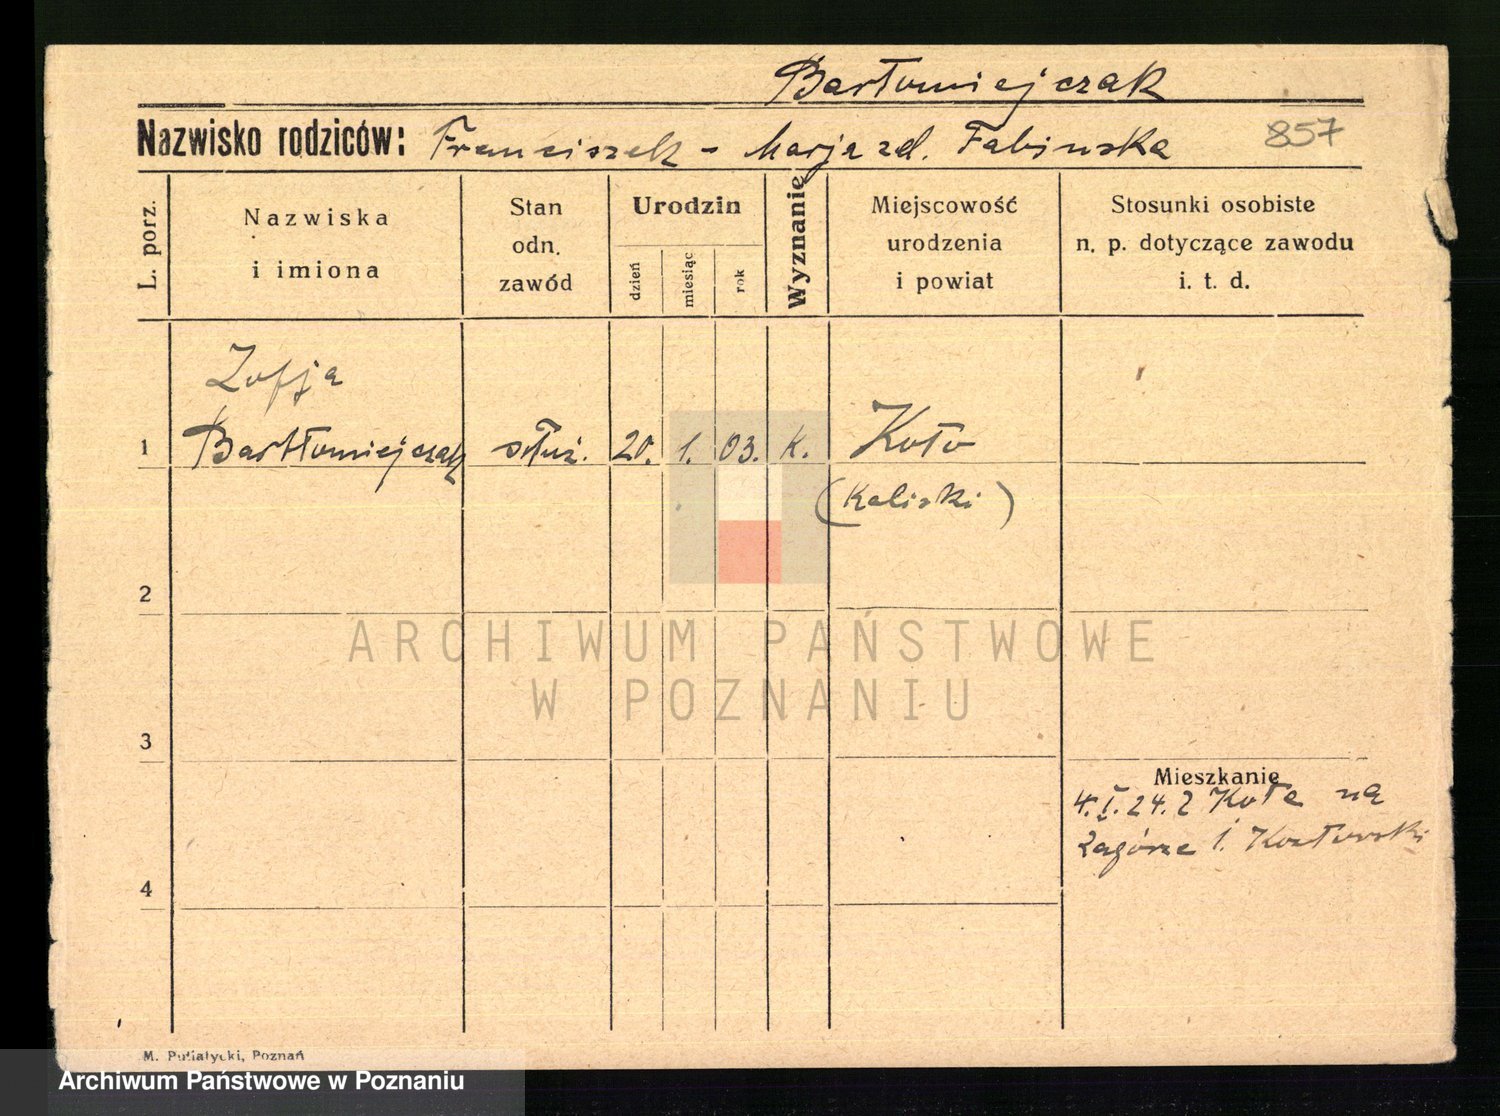 Bartłomiejczak
Nazwisko rodziców: Franciszek - Marja zd. Fabinska
857
L. porz.
Nazwiska
i imiona
Stan
odn.
zawód
Urodzin
dzień
miesiąc
rok
Wyznanie
Miejscowość
urodzenia
i powiat
Stosunki osobiste
n. p. dotyczące zawodu
i. t. d.
Zofja
1 Bartłomiejczak służ. 20. 1. 03. K. Koło
(Kaliski)
2
ARCHIWUM PAŃSTWOWE
W POZNANIU
3
Mieszkanie
4. I. 24. z Koła na
Zagórze 1. Kozłowski
4
M. Putiatycki, Poznań
Archiwum Państwowe w Poznaniu